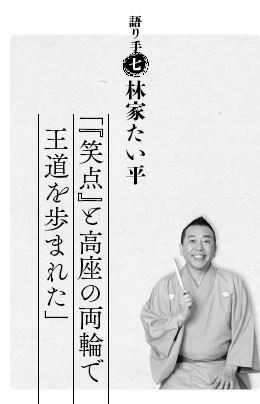 語り手 七 林家たい平
「『笑点』と高座の両輪で
王道を歩まれた」